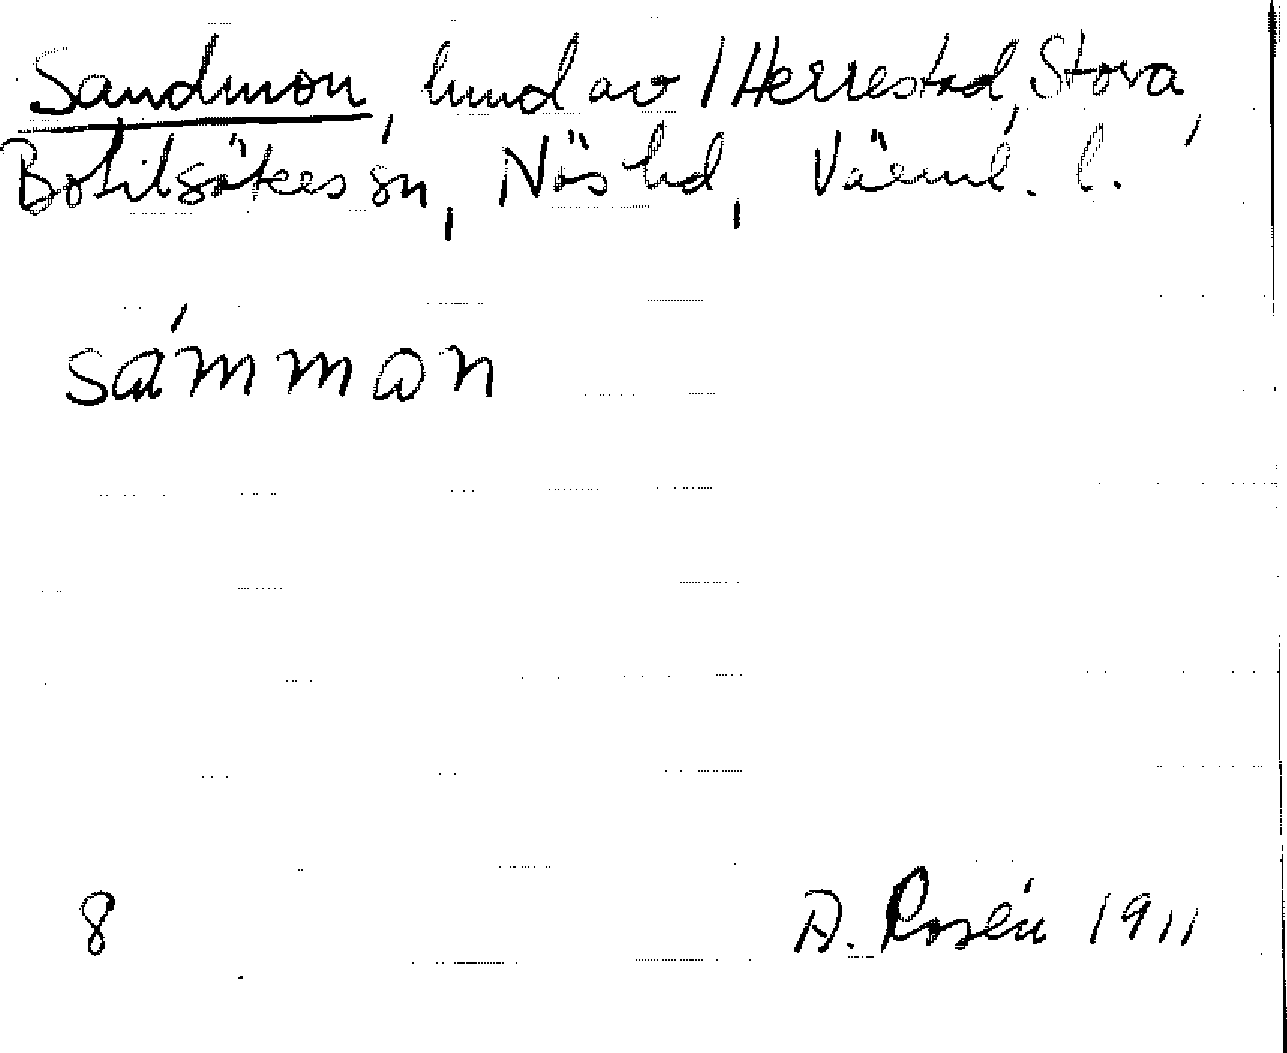 Sandmon, hmd av 1 Herrestad, Stora,
Botilsäkers sn, Näs hd, Värml. l.
sámmon
8
D. Rosén 1911